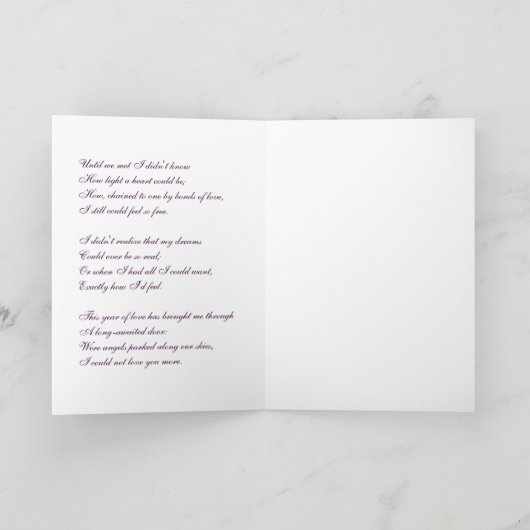 Until we met I didn't know
How light a heart could be;
How, chained to one by bonds of love,
I still could feel so free.
I didn't realize that my dreams
Could ever be so real;
Or when I had all I could want,
Exactly how I'd feel.
This year of love has brought me through
A long-awaited door:
Were angels parked along our skies,
I could not love you more.